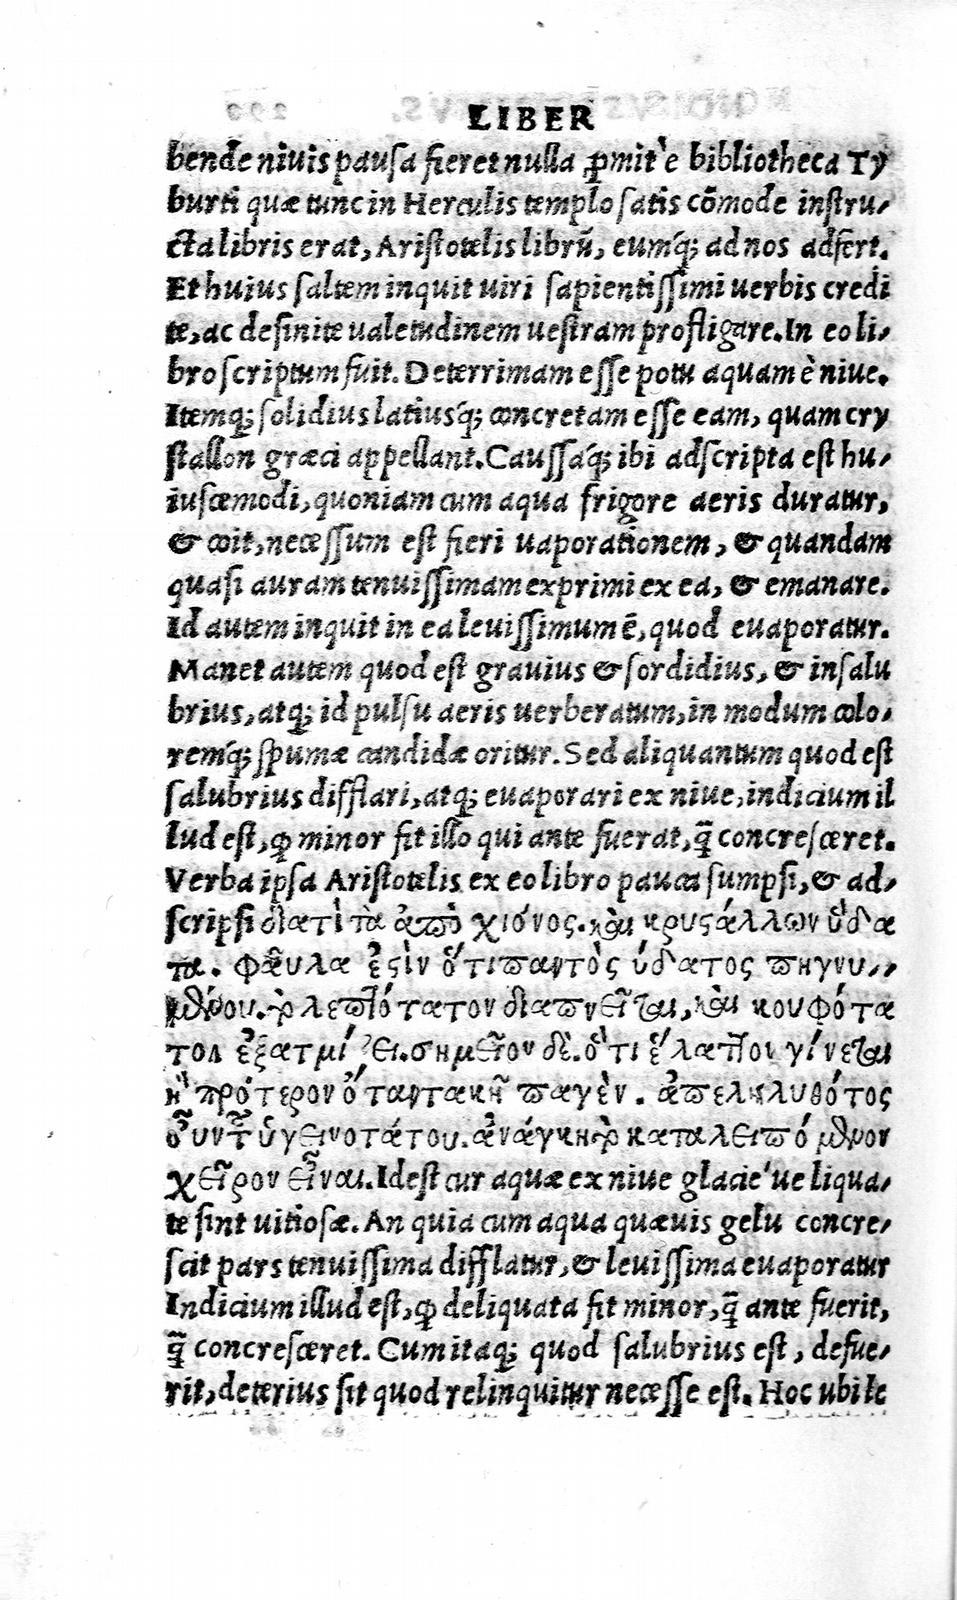 LIBER
bende niuis pausa fieret nulla, ꝓmit è bibliotheca Ty
burti quæ tunc in Herculis templo satis cõmode instru-
cta libris erat, Aristotelis librũ, eumq́; ad nos adfert.
Et huius saltem inquit uiri sapientissimi uerbis credi
te, ac desinite ualetudinem uestram profligare. In eo li-
bro scriptum fuit. Deterrimam esse potu aquam è niue.
Itemq́; solidius latiusq́; concretam esse eam, quam cry
stallon græci appellant. Caussaq́; ibi adscripta est hu-
iuscemodi, quoniam cum aqua frigore aeris duratur,
& coit, necessum est fieri uaporationem, & quandam
quasi auram tenuissimam exprimi ex ea, & emanare.
Id autem inquit in ea leuissimum ē, quod euaporatur.
Manet autem quod est grauius & sordidius, & insalu
brius, atq; id pulsu aeris uerberatum, in modum colo-
remq́; spumæ candidæ oritur. Sed aliquantum quod est
salubrius difflari, atq; euaporari ex niue, indicium il
lud est, ꝙ minor fit illo qui ante fuerat, q̄ concresceret.
Verba ipsa Aristotelis ex eo libro pauca sumpsi, & ad-
scripsi διατὶ τὰ ἀπὸ χιόνος. καὶ κρυςάλλων ὕδα
τα. φαῦλα ἐςὶν ὅτι παντὸς ὑδατος πηγνυ-
μένου. τὸ λεπτότατον διαπνεῖται, καὶ κουφότα
τον ἐξατμίζει. σημεῖον δὲ. ὅτι ἔλαττον γίνεται
ἢ πρότερον ὅταν τακῇ παγὲν. ἀπεληλυθότος
οὖν τοῦ ὑγεινοτάτου. ἀνάγκη τὸ καταλειπόμενον
χεῖρον εἶναι. Id est cur aquæ ex niue glacie'ue liqua-
te sint uitiosæ. An quia cum aqua quæuis gelu concre-
scit pars tenuissima difflatur, & leuissima euaporatur
Indicium illud est, ꝙ deliquata fit minor, q̄ ante fuerit,
q̄ concresceret. Cum itaq; quod salubrius est, defue-
rit, deterius fit quod relinquitur necesse est. Hoc ubi le